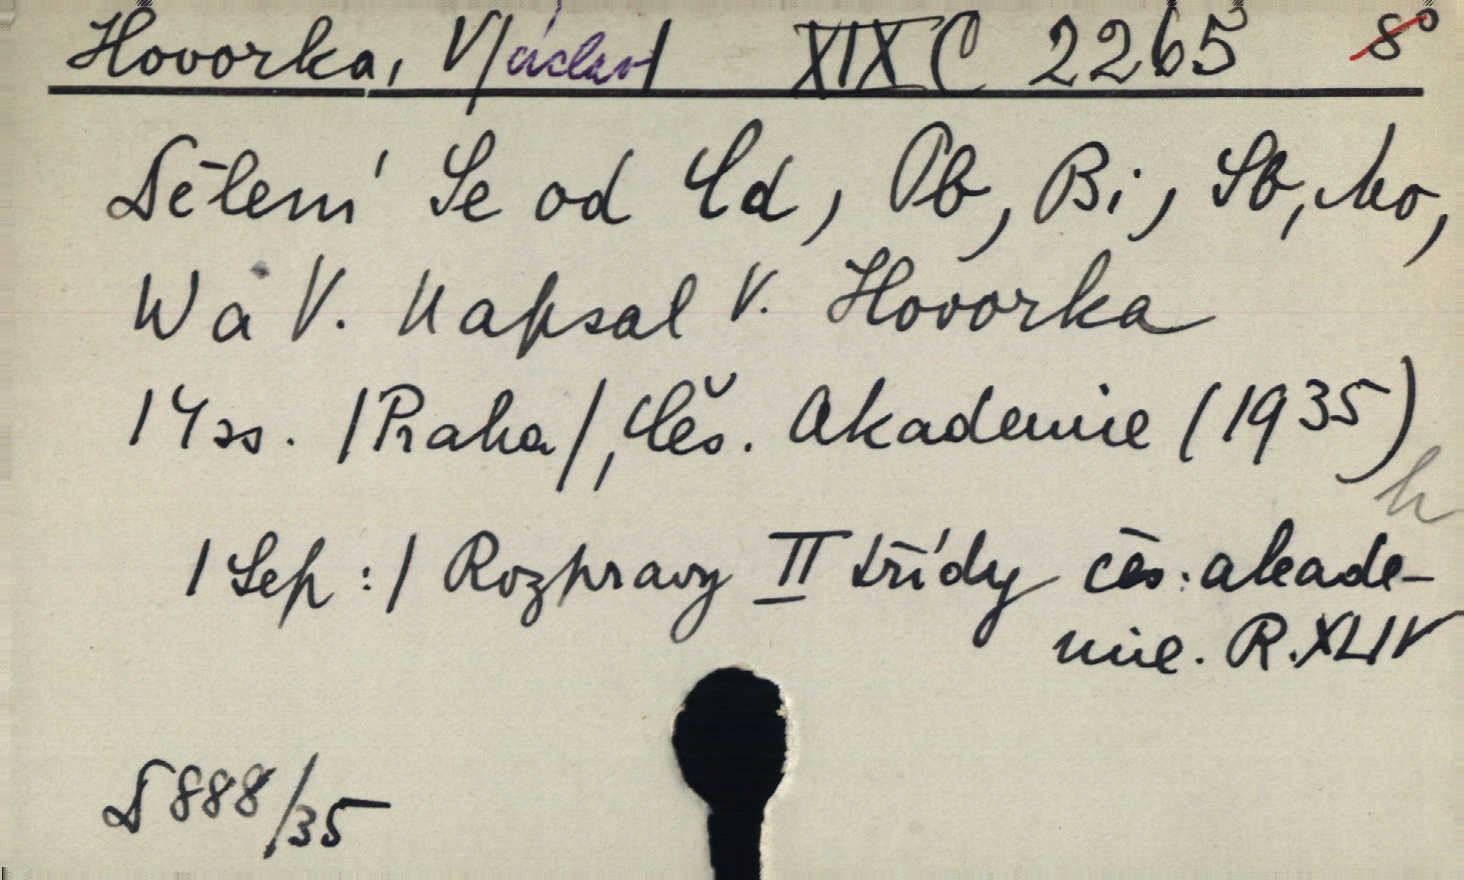 Hovorka, V/áclav/ XIX C 2265 8°
Dělení Se od Cd, Pb, Bi, Sb, Mo,
W a V. Napsal V. Hovorka
14 ss. /Praha/, Čes. Akademie (1935)
h
/Sep:/ Rozpravy II třídy čes. akade-
mie. R. XLIV
D 888/35